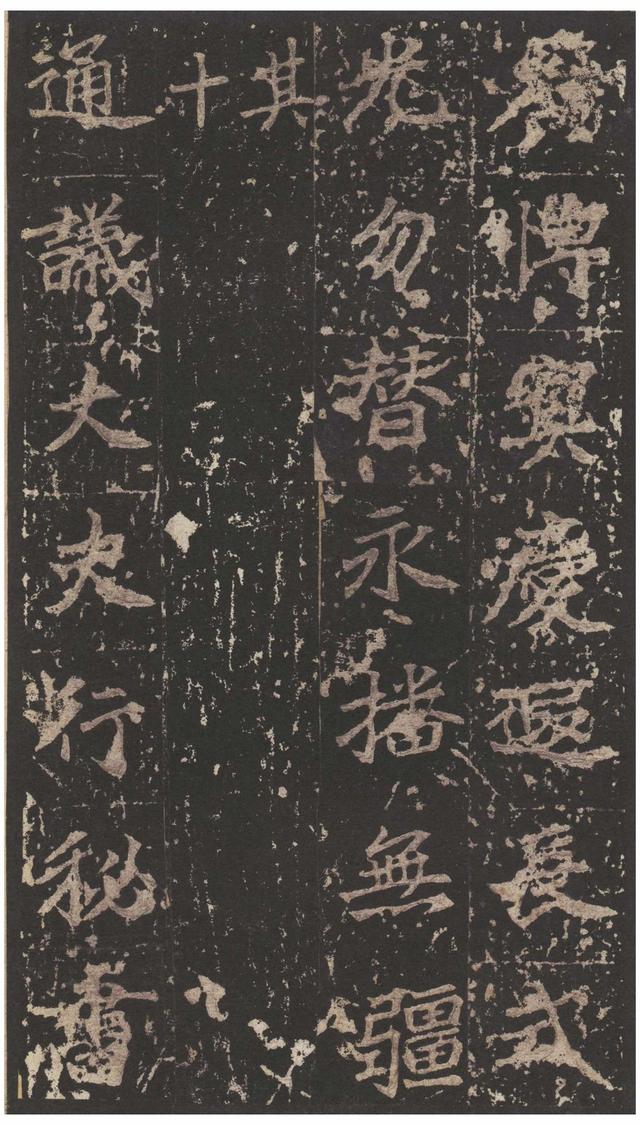 遐長式
光勿替永播無疆
其十
通議大夫行秘書